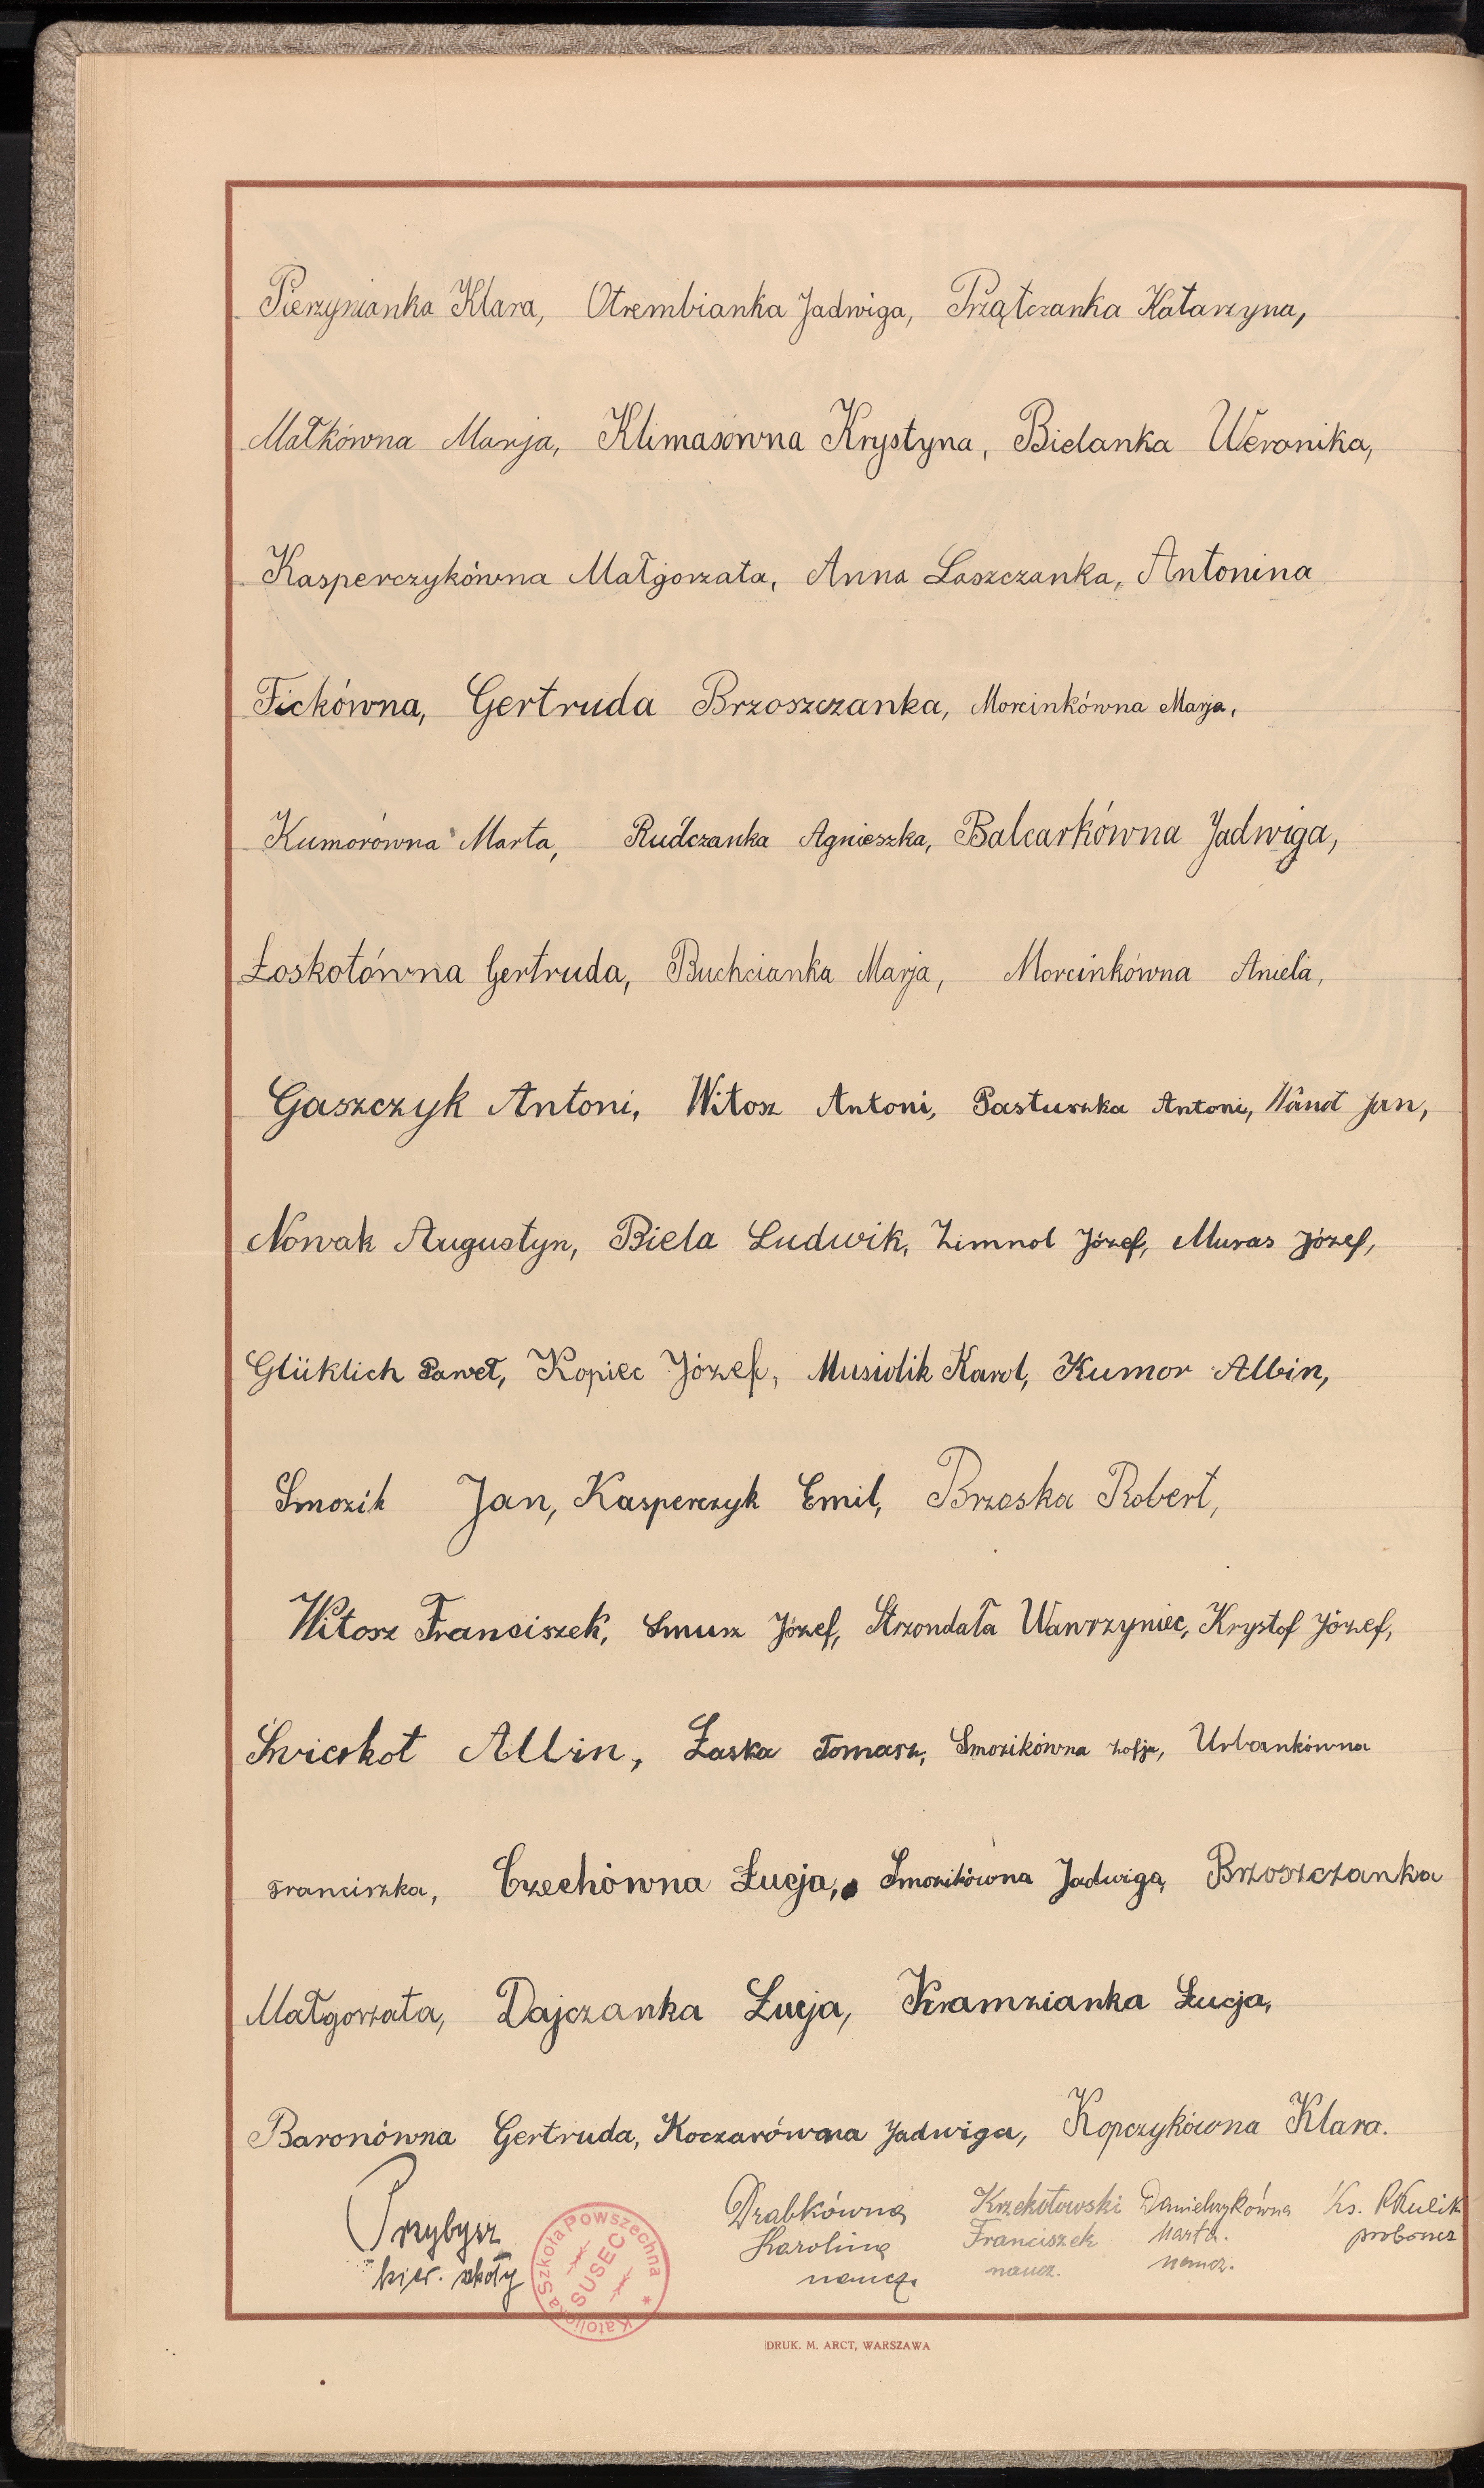 Pierzynianka Klara, Otrembianka Jadwiga, Prządczanka Katarzyna,
Małkówna Marja, Klimasówna Krystyna, Bielanka Weronika,
Kasperczykówna Małgorzata, Anna Laszczanka, Antonina
Fickówna, Gertruda Brzoszczanka, Morcinkówna Marja,
Kumorówna Marta, Rudczanka Agnieszka, Balcarkówna Jadwiga,
Łoskotówna Gertruda, Buchcianka Marja, Morcinkówna Aniela,
Gaszczyk Antoni, Witosz Antoni, Pastuszka Antoni, Jan,
Nowak Augustyn, Biela Ludwik, Zimnol Józef, Muras Józef,
Glüklich Paweł, Kopiec Józef, Musiolik Karol, Kumor Albin,
Smozik Jan, Kasperczyk Emil, Brzoska Robert,
Witosz Franciszek, Smusz Józef, Strzondała Wawrzyniec, Krystof Józef,
Świerkot Albin, Łaska Tomasz, Smozikówna Zofja, Urbankówna
Franciszka, Czechówna Łucja, Smozikówna Jadwiga, Brzoszczanka
Małgorzata, Dajczanka Łucja, Kramzianka Łucja,
Baronówna Gertruda, Koczarówna Jadwiga, Kopczykówna Klara.
Przybysz Drabkówna Krzekotowski Danielczykówna Ks.
kier. szkoły Karolina Franciszek Marta. proboszcz
naucz. naucz. naucz.
Katolicka Szkoła Powszechna
SUSEC
DRUK. M. ARCT, WARSZAWA